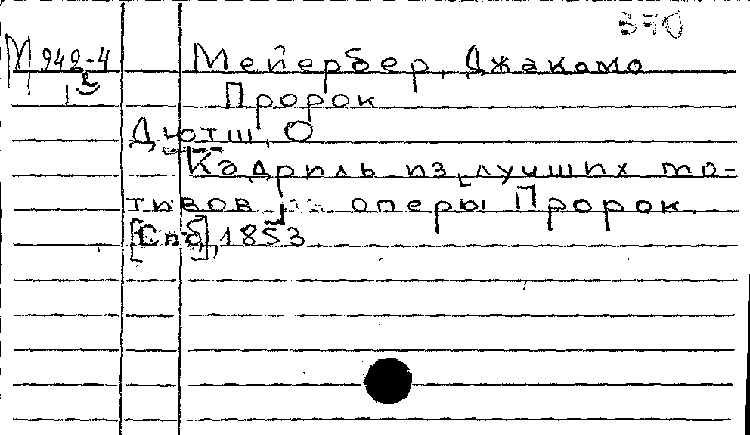 370
М 942-4 Мейербер, Джакомо
Пророк
Дютш, О
Кадриль из лучших мо-
тивов из оперы Пророк.
[Спб], 1853